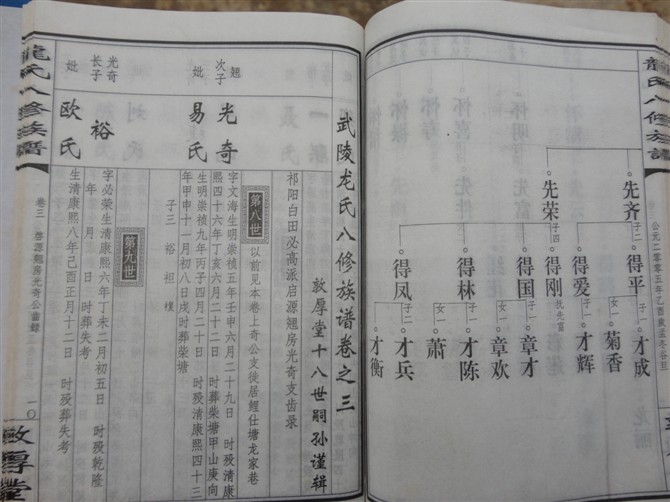 龍氏八修族譜
先齐 子二
得平
才成
女一 菊香
得爱
才辉
先荣 子四
得刚 抚先富
得国 子二
章才
章欢
得林
才陈
女一 萧
得凤 子二
才兵
才衡
武陵龙氏八修族谱卷之三
敦厚堂十八世嗣孙谨辑
祁阳白田必高派启源翘房光奇支齿录
第八世 以前见本卷上奇公支徒居鲤仕塘龙家巷
翘次子 光奇
字文海生明崇祯五年壬申六月二十九日 时殁清康
熙四十六年丁亥六月二十二日 时葬柴塘甲山庚向
妣 易氏
生明崇祯九年丙子四月二十日 时殁清康熙四十三
年甲申十一月初八日戌时葬柴塘
子三 裕 祖 樸
第九世
光奇长子 裕
字必荣生清康熙六年丁未二月初五日 时殁乾隆
年 月 日 时葬失考
妣 欧氏
生清康熙八年己酉正月十二日 时殁葬失考
龍氏八修族譜
卷三 启源翘房光奇公齿录
一〇
敦厚堂